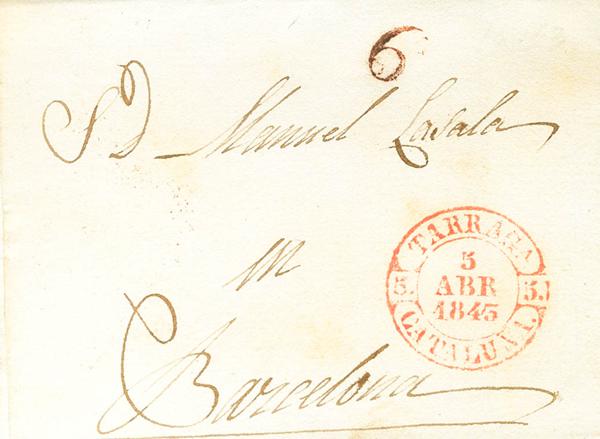 6
S D Manuel Casala
en
Barcelona
TARRAGA
5
ABR
1843
5. 5.
CATALUÑA.